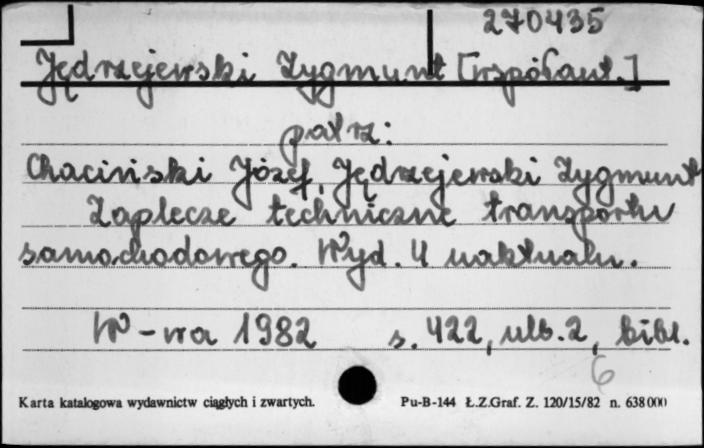 270435
Jędrzejewski Zygmunt [współaut.]
patrz:
Chaciński Józef, Jędrzejewski Zygmunt
Zaplecze techniczne transportu
samochodowego. Wyd. 4 uaktualn.
W-wa 1982 s. 422, ulb. 2, bibl.
6
Karta katalogowa wydawnictw ciągłych i zwartych. Pu-B-144 Ł.Z.Graf. Z. 120/15/82 n. 638000